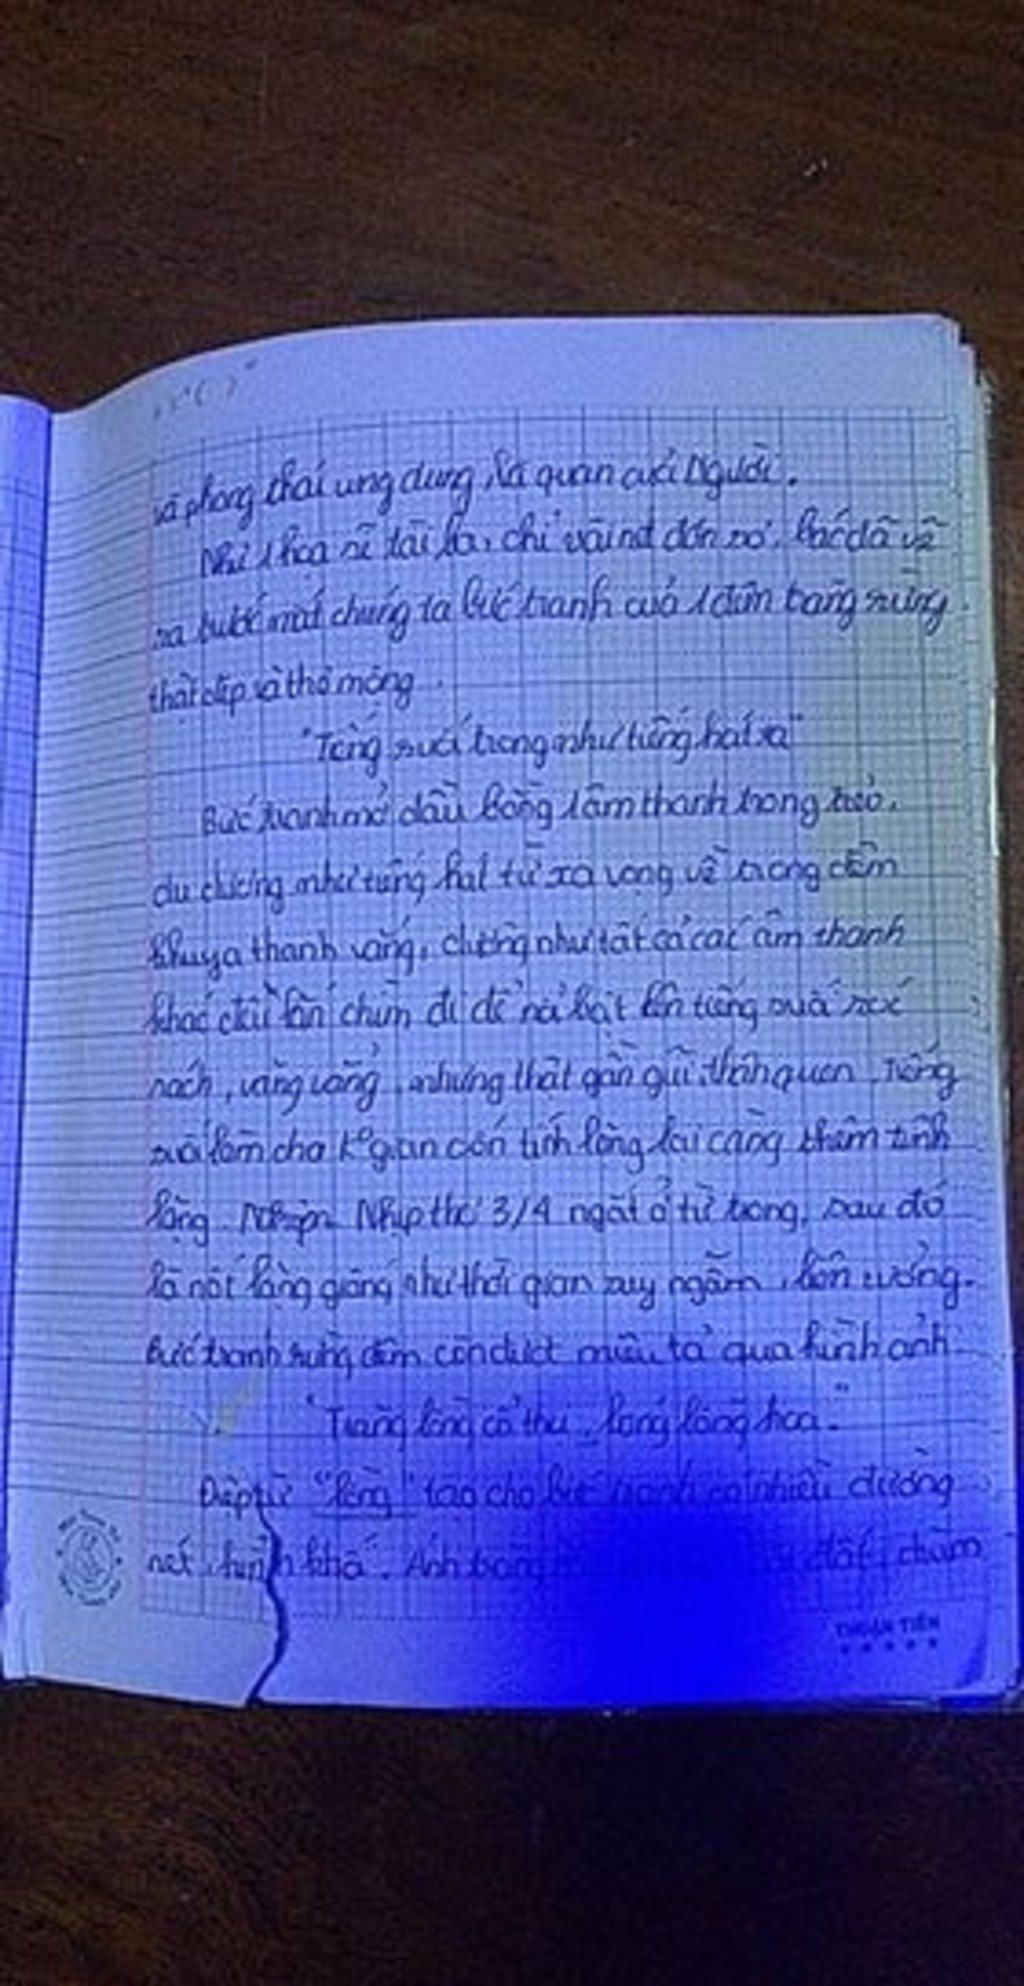 và phong thái ung dung, lạc quan của Người.
Như 1 họa sĩ tài ba, chỉ vài nét đơn sơ, Bác đã vẽ
ra trước mắt chúng ta bức tranh của 1 đêm trăng rừng
thật đẹp và thơ mộng.
"Tiếng suối trong như tiếng hát xa"
Bức tranh mở đầu bằng 1 âm thanh trong trẻo,
du dương như tiếng hát từ xa vọng về trong đêm
khuya thanh vắng, dường như tất cả các âm thanh
khác đều lắn chìm đi để nổi bật lên tiếng suối róc
rách, văng vẳng nhưng thật gần gũi, thân quen. Tiếng
suối làm cho k° gian còn tĩnh lặng lại càng thêm tĩnh
lặng. Nhịp thơ 3/4 ngắt ở từ trong, sau đó
là nốt lặng giống như thời gian suy ngẫm, liên tưởng.
Bức tranh rừng đêm còn được miêu tả qua hình ảnh
"Trăng lồng cổ thụ, bóng lồng hoa."
Điệp từ "lồng" tạo cho bức tranh có nhiều đường
nét, hình khối. Ánh trăng đất, chùm
THUẬN TIẾN